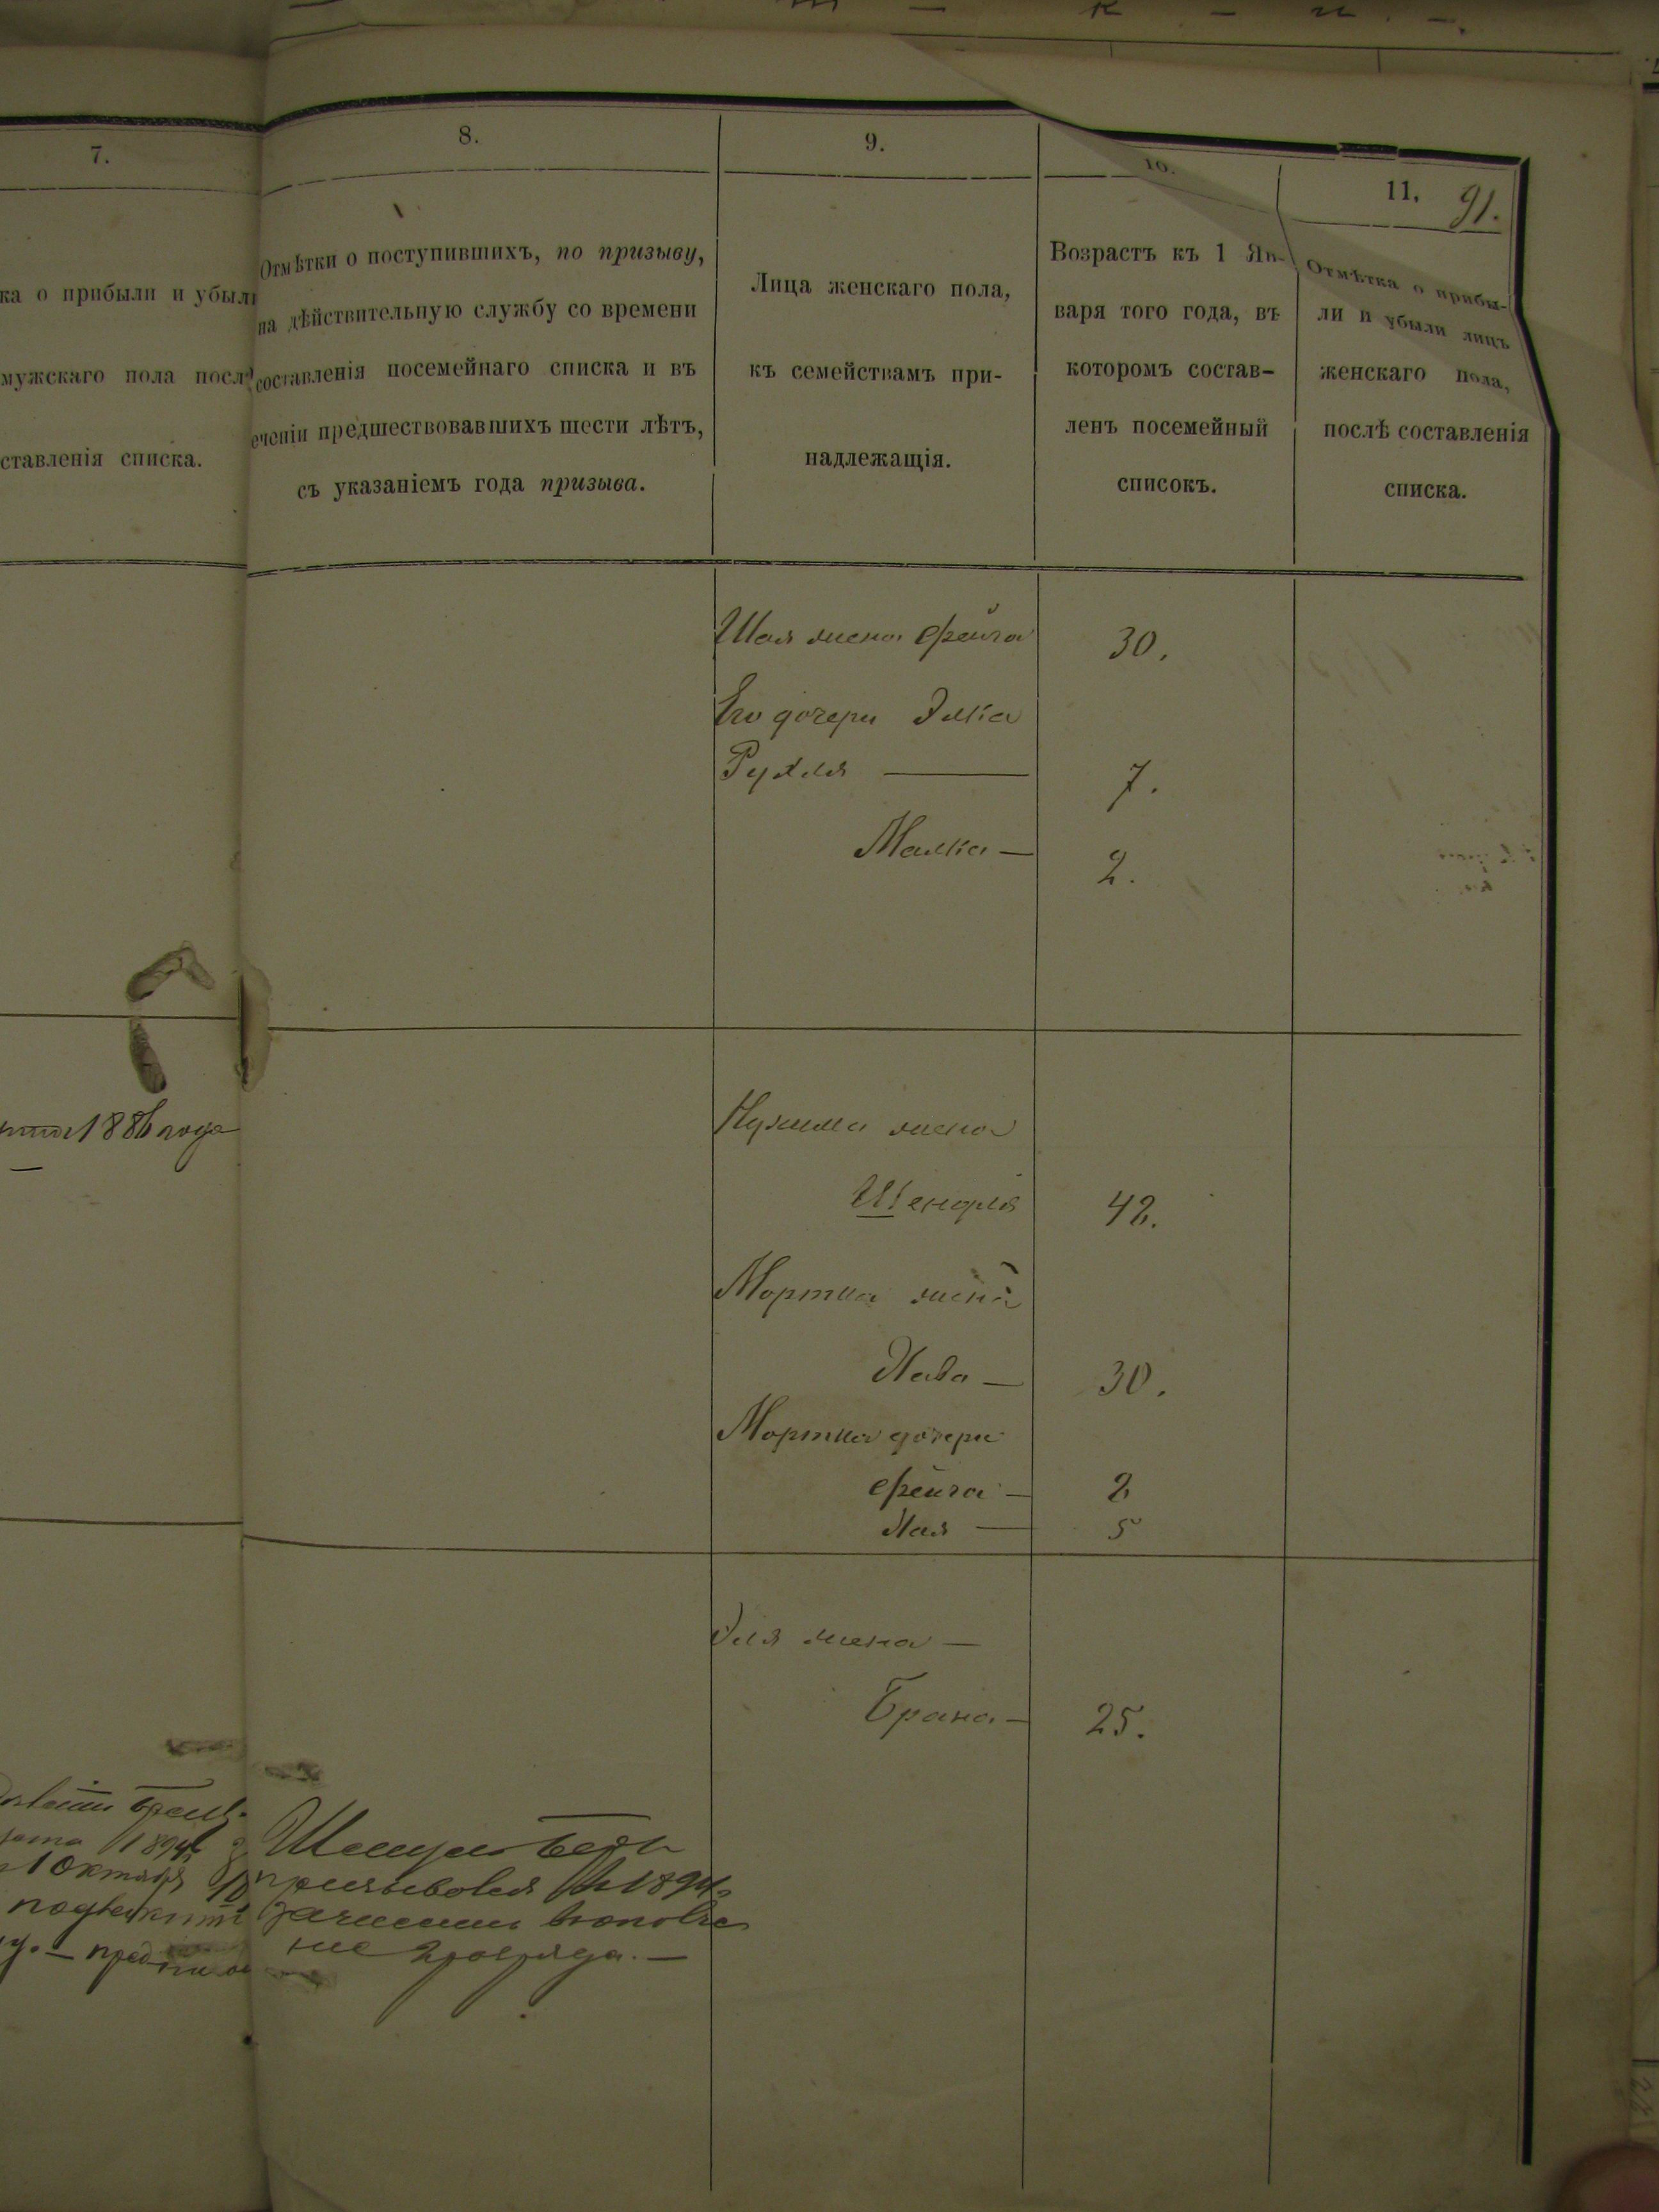 7.
8.
9.
10.
11.
91.
ка о прибыли и убыли
мужскаго пола послѣ
ставленія списка.
Отмѣтки о поступившихъ, по призыву,
на дѣйствительную службу со времени
составленія посемейнаго списка и въ
еченіи предшествовавшихъ шести лѣтъ,
съ указаніемъ года призыва.
Лица женскаго пола,
къ семействамъ при-
надлежащія.
Возрастъ къ 1 Ян-
варя того года, въ
которомъ состав-
ленъ посемейный
списокъ.
Отмѣтка о прибы-
ли и убыли лицъ
женскаго пола,
послѣ составленія
списка.
Шая жена Фейга 30.
Его дочери Элка
Рухля — 7.
Малка — 2.
1886 года
Нухима жена
Шендля 42.
Мортка жена
Хава — 30.
Мортка дочери
Фейга — 2
Хая — 5
Эля жена —
Брана — 25.
1894
1 Октября
призывался въ 1894
зачисленъ въ ополче
ние 2 разряда. —